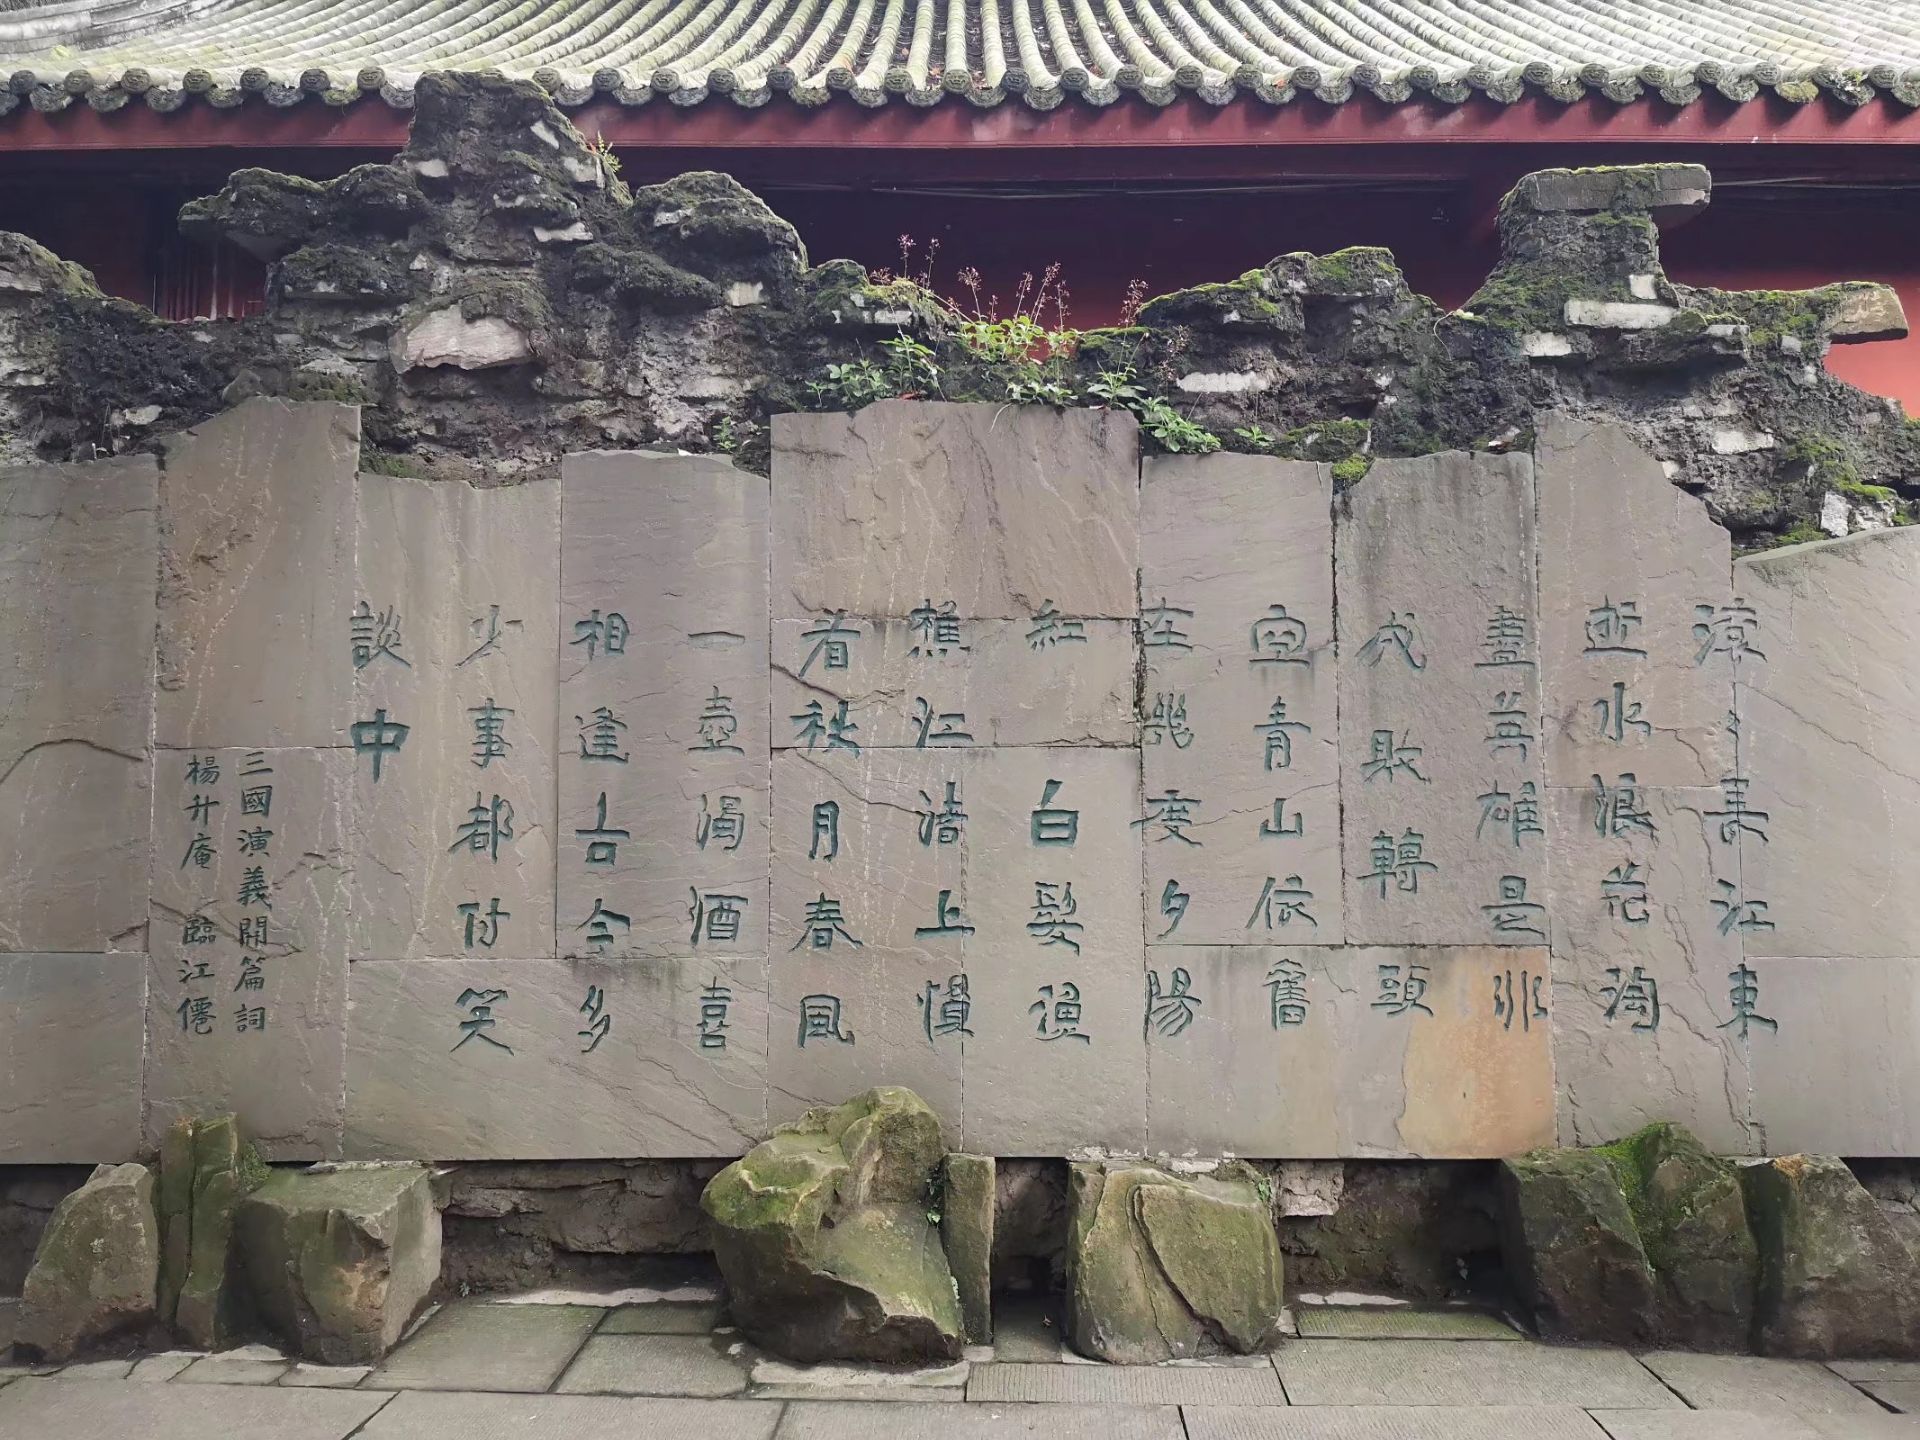 滾〻長江東
逝水浪花淘
盡英雄是非
成敗轉頭
空青山依舊
在幾度夕陽
紅 白髮漁
樵江渚上慣
看秋月春風
一壺濁酒喜
相逢古今多
少事都付笑
談中
三國演義開篇詞
楊升庵 臨江僊